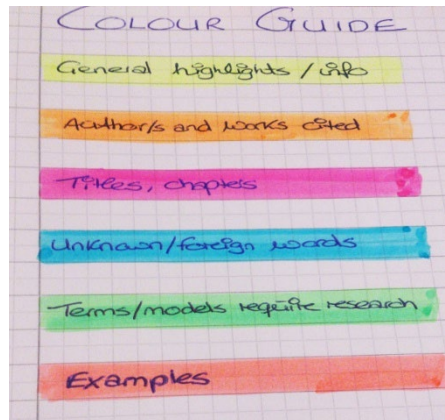 COLOUR GUIDE
General highlights / info
Author/s and works cited
Titles, chapters
Unknown/foreign words
Terms/models require research
Examples